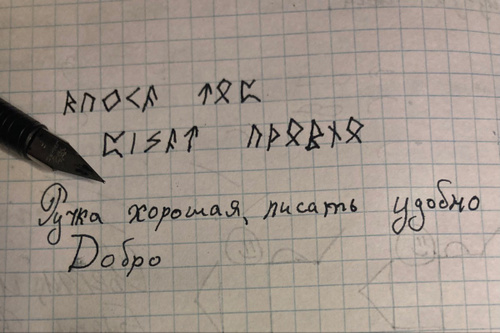 ᚱᚢᛟᚲᚨ ᛏᛟᛈ
ᛈᛁᛊᚨᛏ ᚢᚦᛟᛒᚾᛟ
Ручка хорошая, писать удобно
Добро